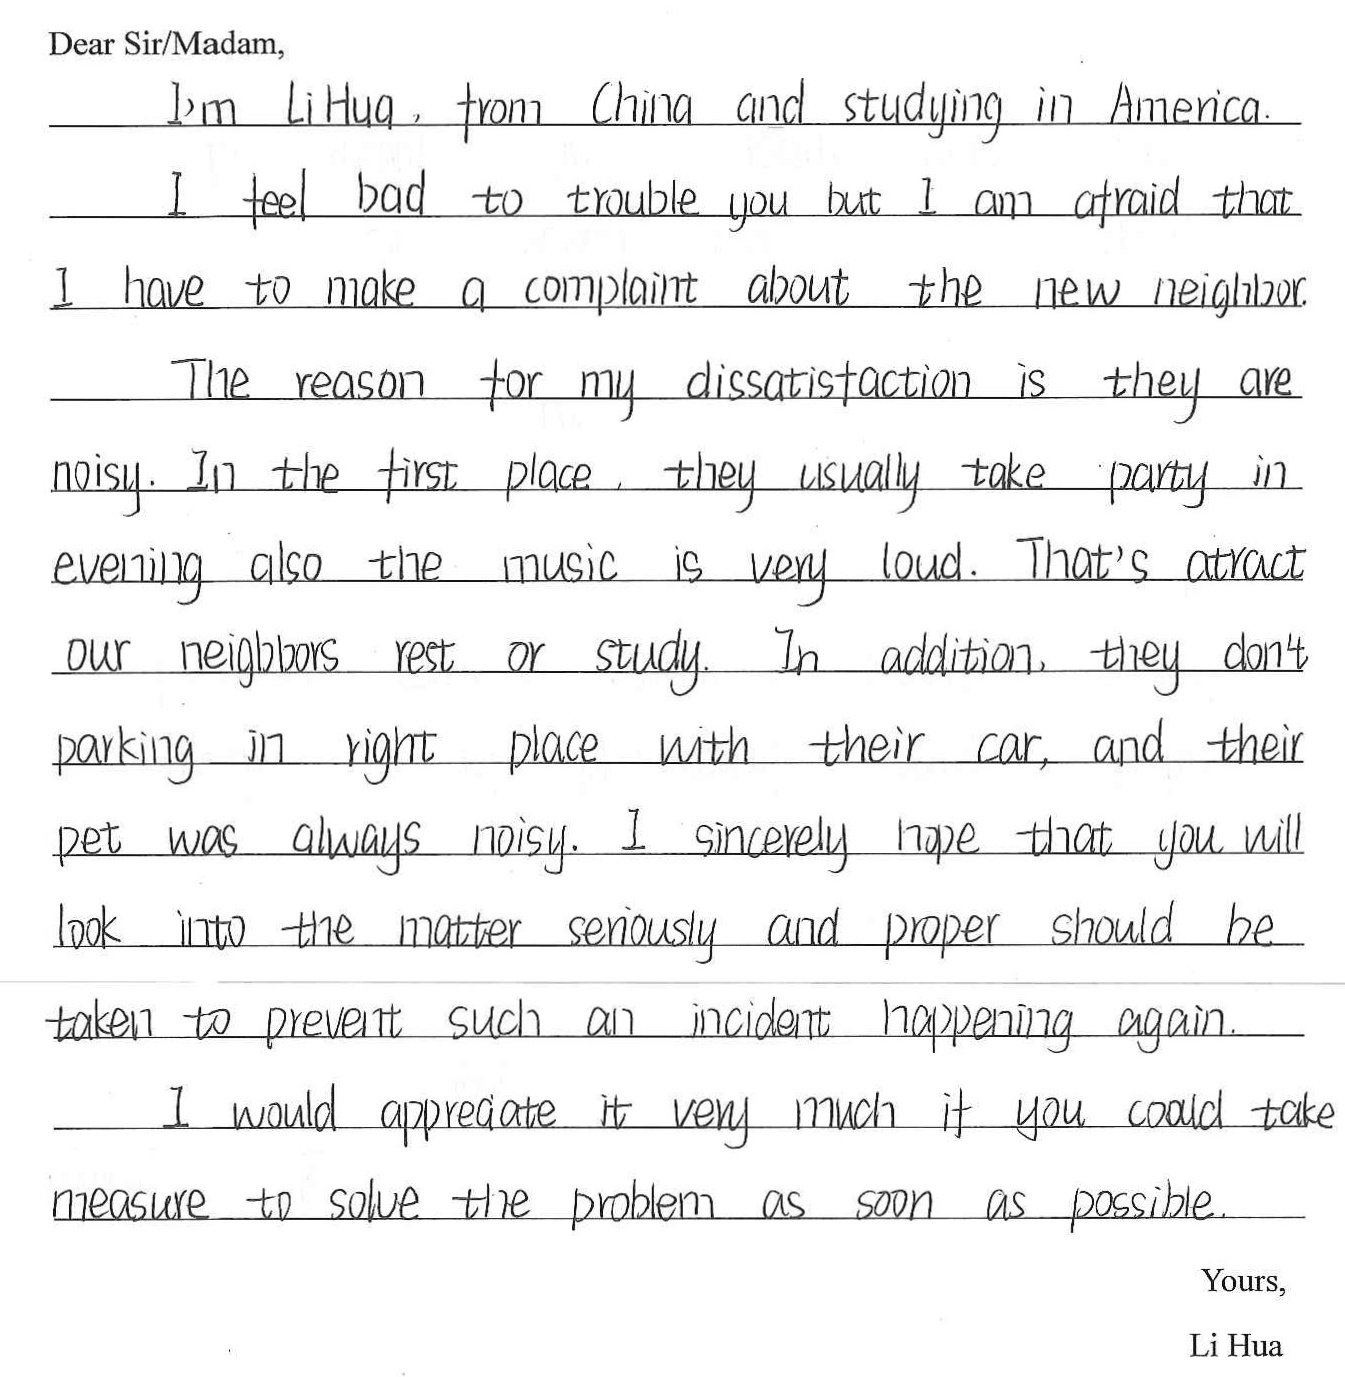 Dear Sir/Madam,
I'm Li Hua, from China and studying in America.
I feel bad to trouble you but I am afraid that
I have to make a complaint about the new neighbor.
The reason for my dissatisfaction is they are
noisy. In the first place, they usually take party in
evening also the music is very loud. That's atract
our neigbbors rest or study. In addition, they don't
parking in right place with their car, and their
pet was always noisy. I sincerely hope that you will
look into the matter seriously and proper should be
taken to prevent such an incident happening again.
I would appreciate it very much if you coald take
measure to solve the problem as soon as possible.
Yours,
Li Hua